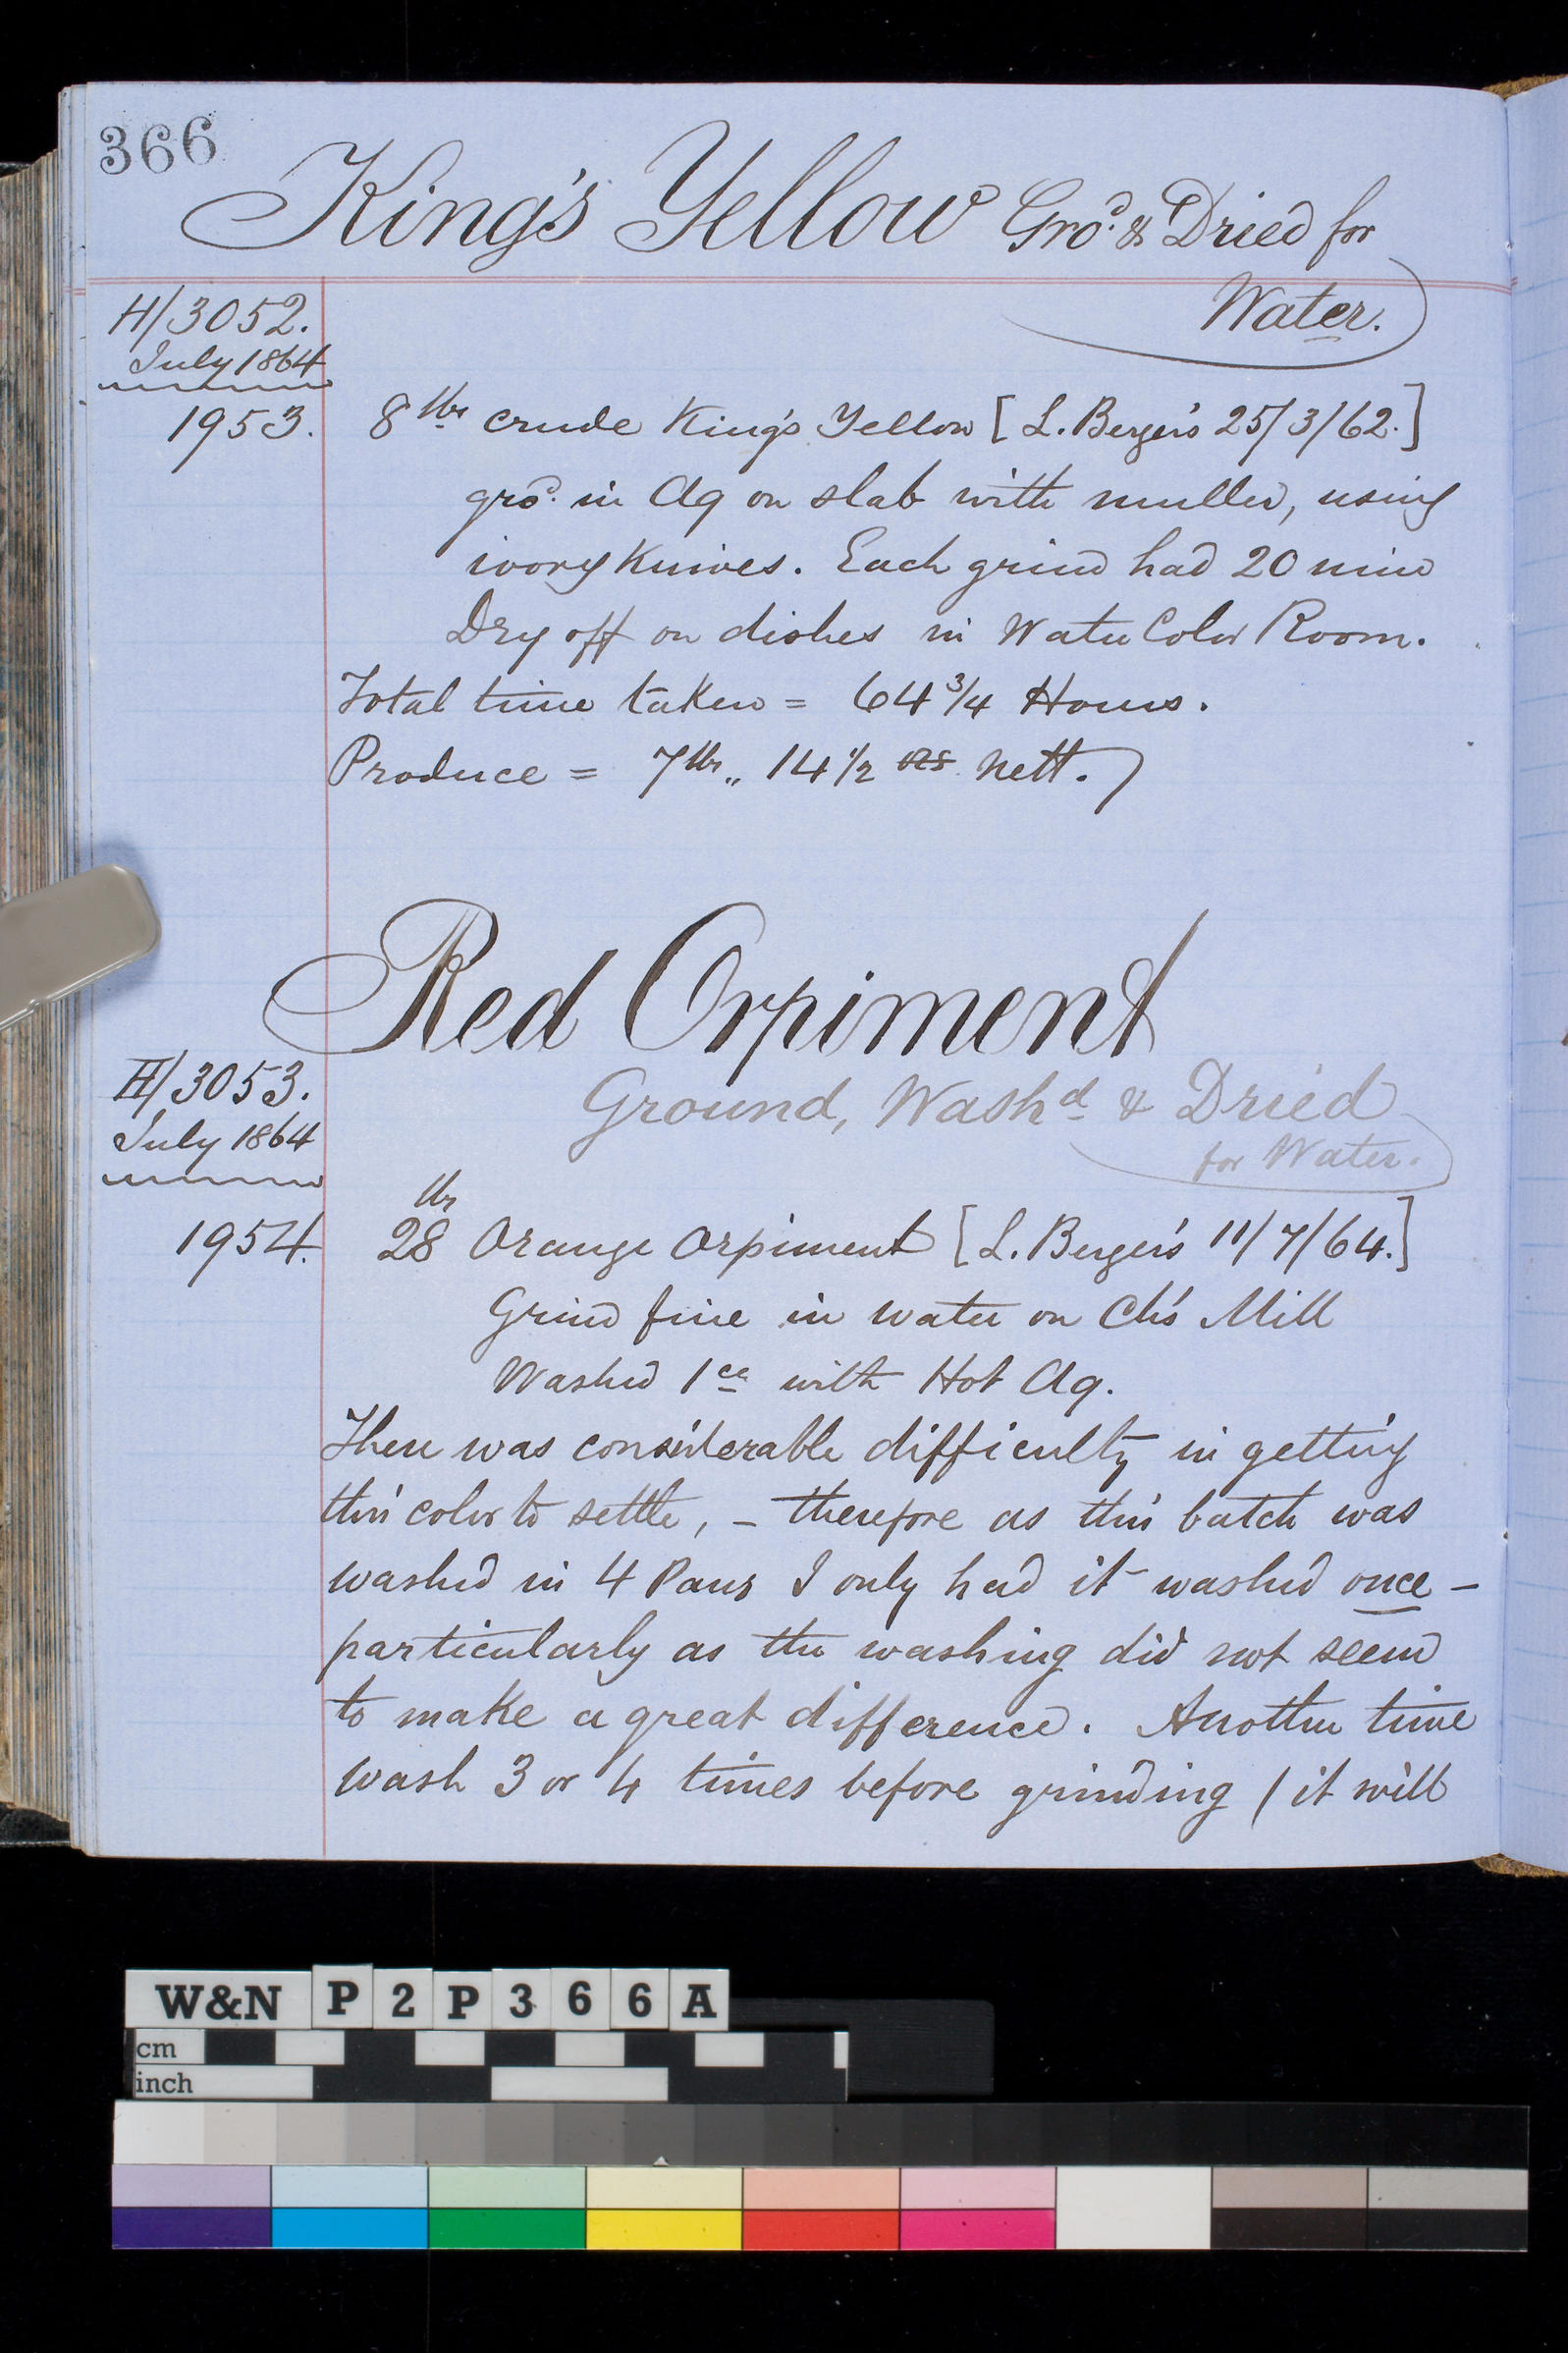 366
King's Yellow Gro.d & Dried for
Water.
H/3052.
July 1864
1953. 8 lbs crude King's Yellow [L. Berger's 25/3/62.]
gro.d in Aq on slab with muller, using
ivory Knives. Each grind had 20 min
Dry off on dishes in Water Color Room.
Total time taken = 64 3/4 Hours.
Produce = 7 lbs ,, 14 1/2 ozs nett.
Red Orpiment
Ground, Wash'd & Dried
for Water.
H/3053.
July 1864
1954. 28 lbs Orange Orpiment [L. Berger's 11/7/64.]
Grind fine in water on Ch's Mill
Washed 1ce with Hot Aq.
There was considerable difficulty in getting
this color to settle, – therefore as this batch was
washed in 4 Pans I only had it washed once –
particularly as the washing did not seem
to make a great difference. Another time
wash 3 or 4 times before grinding (it will
W&N P2P366A
cm
inch